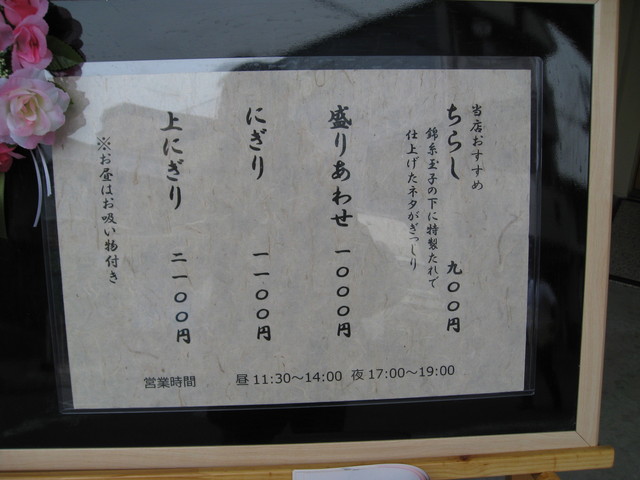 当店おすすめ
ちらし 九〇〇円
錦糸玉子の下に特製たれで
仕上げたネタがぎっしり
盛りあわせ 一〇〇〇円
にぎり 一一〇〇円
上にぎり 二一〇〇円
※お昼はお吸い物付き
営業時間 昼 11:30～14:00 夜 17:00～19:00